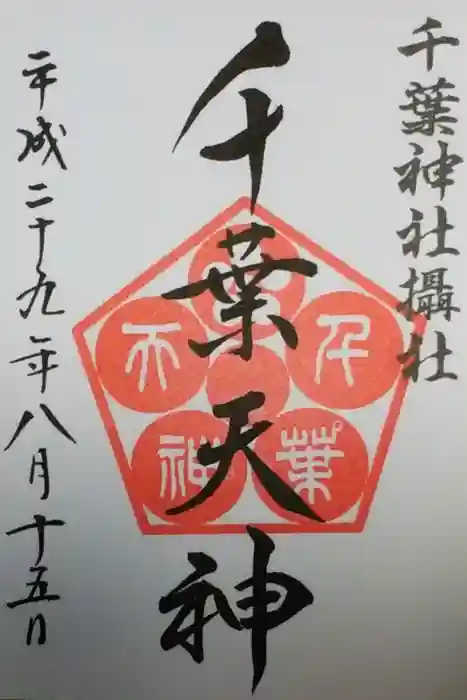 千葉神社攝社
千葉天神
平成二十九年八月十五日
千
葉
天
神